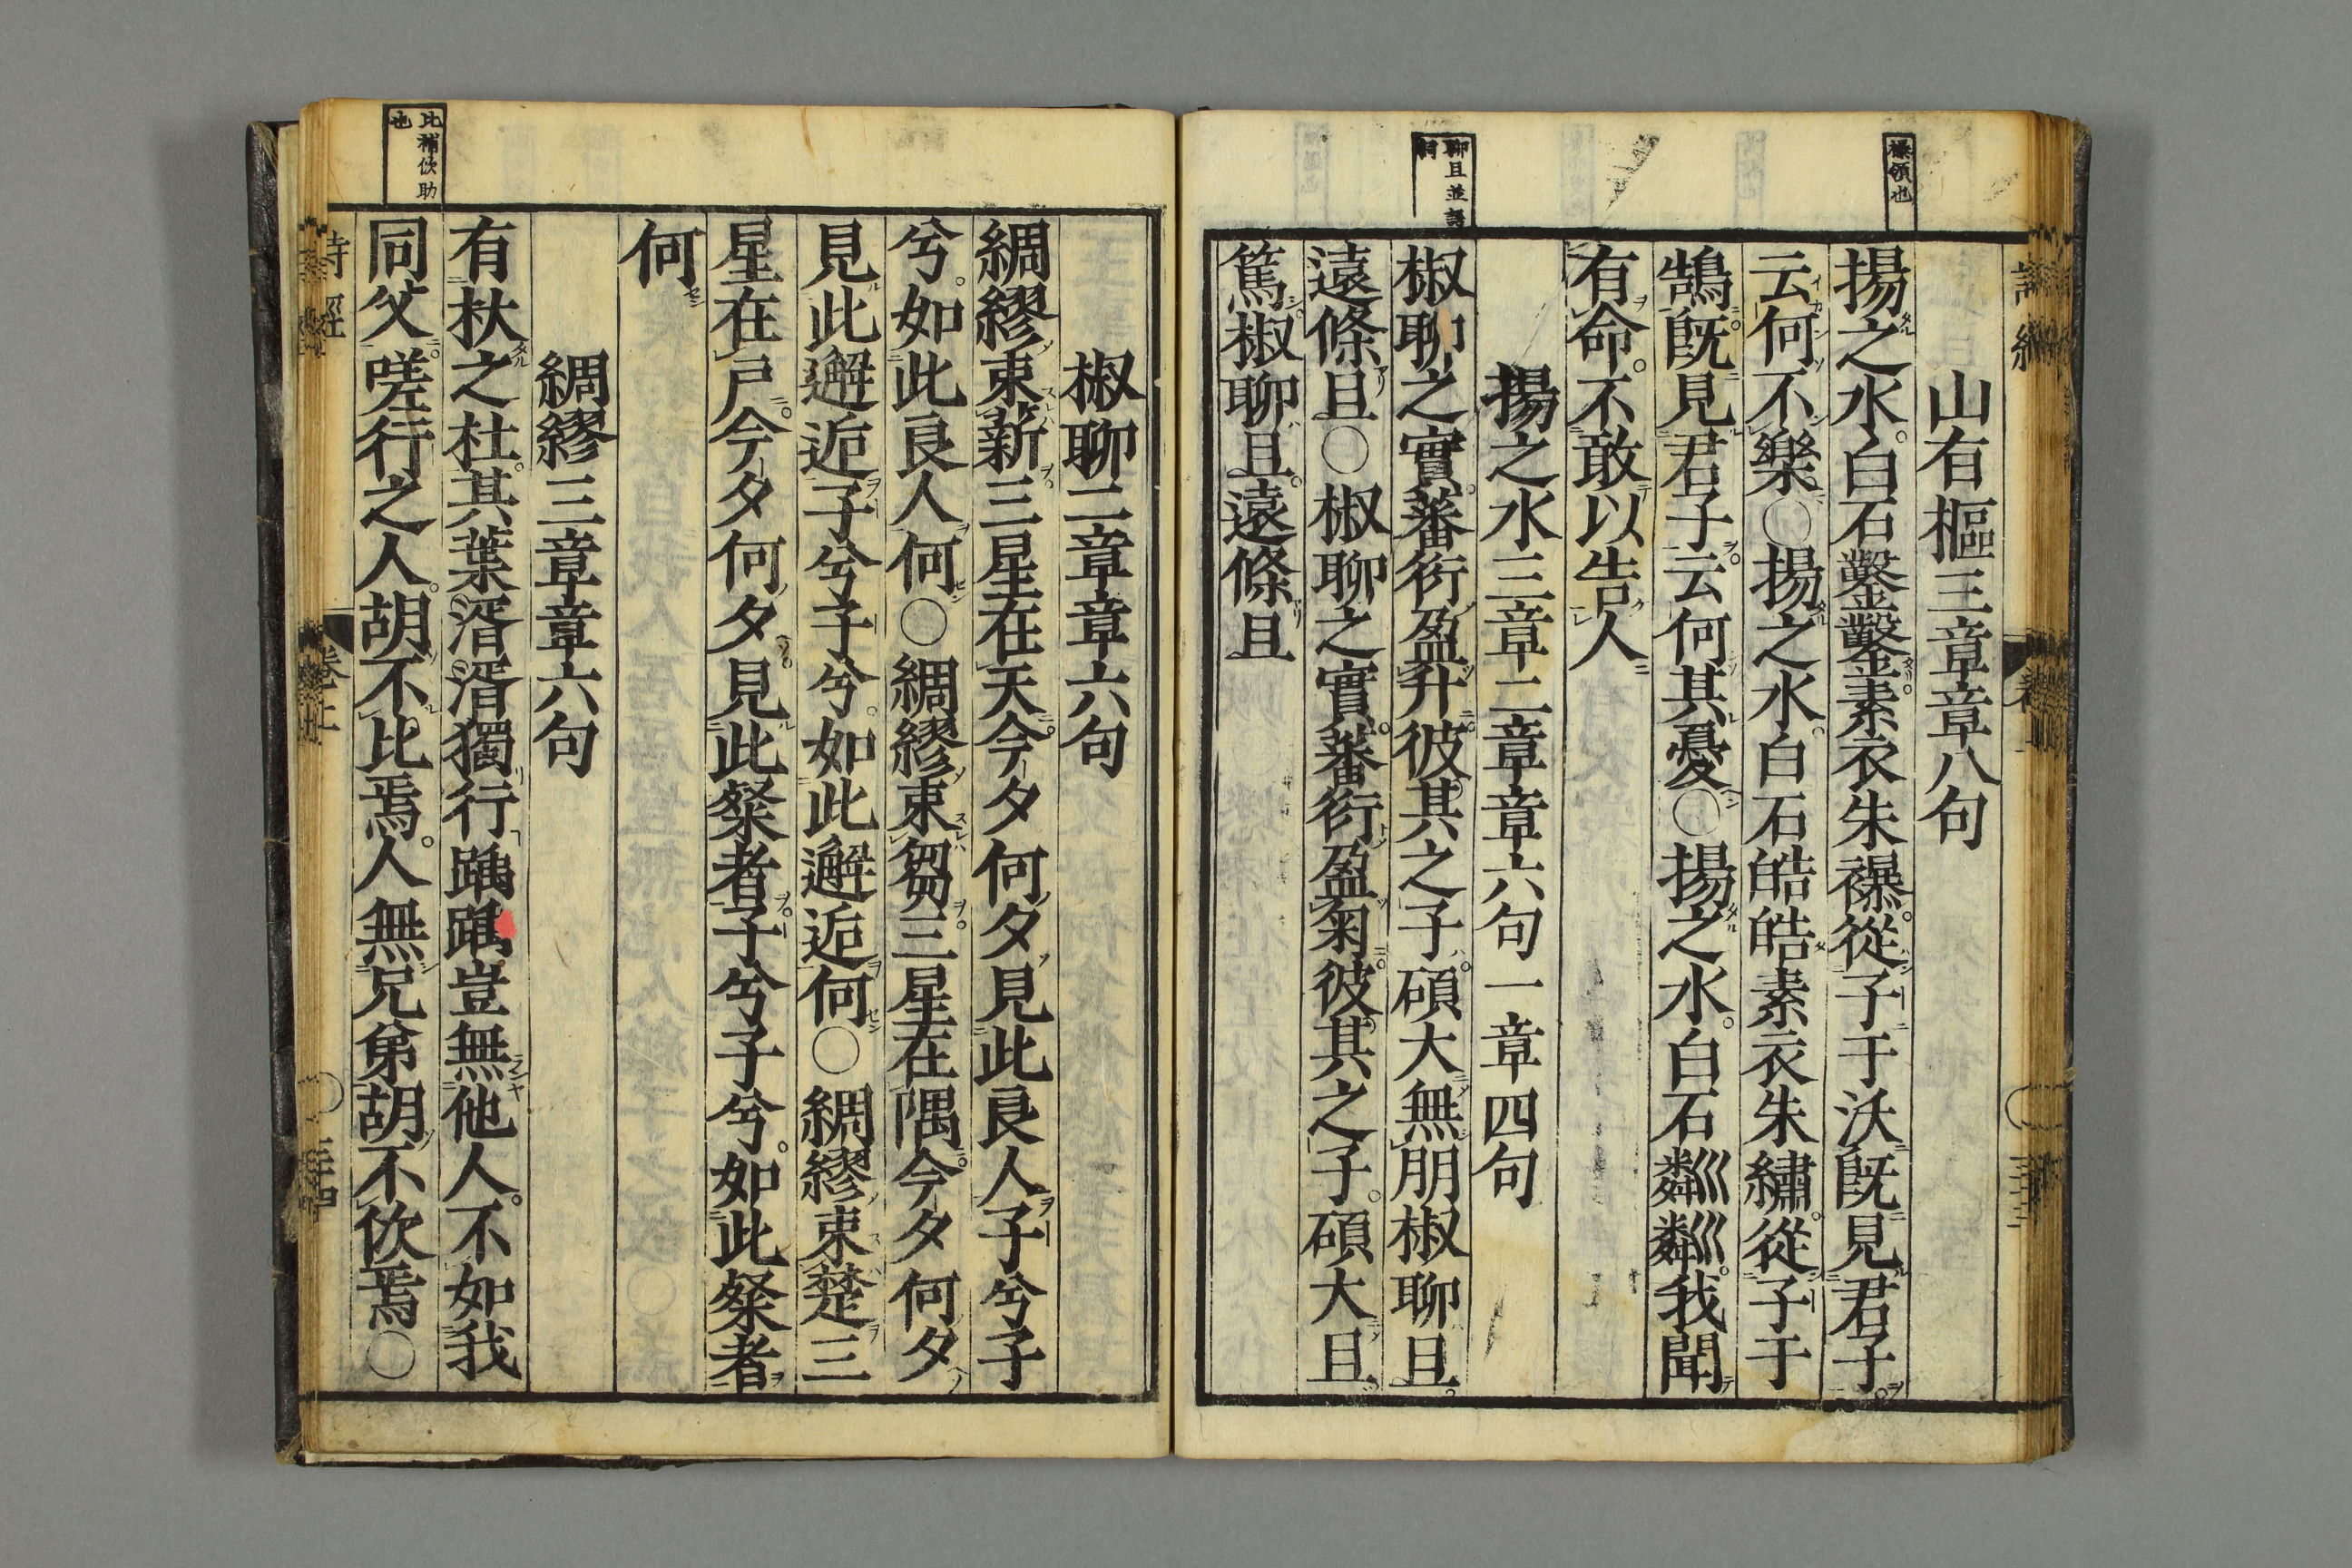 襮領也
聊且並語
詞
山有樞三章章八句
揚之水白石鑿鑿素衣朱襮從子于沃旣見君子
云何不樂○揚之水白石皓皓素衣朱繡從子于
鵠旣見君子云何其憂○揚之水白石粼粼我聞
有命不敢以告人
揚之水三章二章章六句一章四句
椒聊之實蕃衍盈升彼其之子碩大無朋椒聊且
遠條且○椒聊之實蕃衍盈匊彼其之子碩大且
篤椒聊且遠條且
比補佽助
也
椒聊二章章六句
綢繆束薪三星在天今夕何夕見此良人子兮子
兮如此良人何○綢繆束芻三星在隅今夕何夕
見此邂逅子兮子兮如此邂逅何○綢繆束楚三
星在戶今夕何夕見此粲者子兮子兮如此粲者
何
綢繆三章章六句
有杕之杜其葉湑湑獨行踽踽豈無他人不如我
同父嗟行之人胡不比焉人無兄弟胡不佽焉○
詩經 卷上